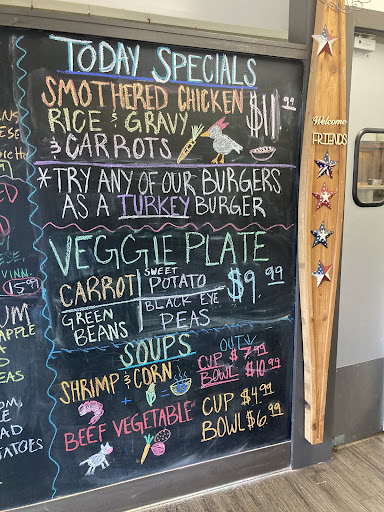 TODAY SPECIALS
SMOTHERED CHICKEN
RICE & GRAVY
& CARROTS
$11.99
*TRY ANY OF OUR BURGERS
AS A TURKEY BURGER
VEGGIE PLATE
CARROT
SWEET
POTATO
GREEN
BEANS
BLACK EYE
PEAS
$9.99
SOUPS
SHRIMP & CORN
OUT
CUP $7.99
BOWL $10.99
BEEF VEGETABLE
CUP $4.99
BOWL $6.99
Welcome
FRIENDS
15.99